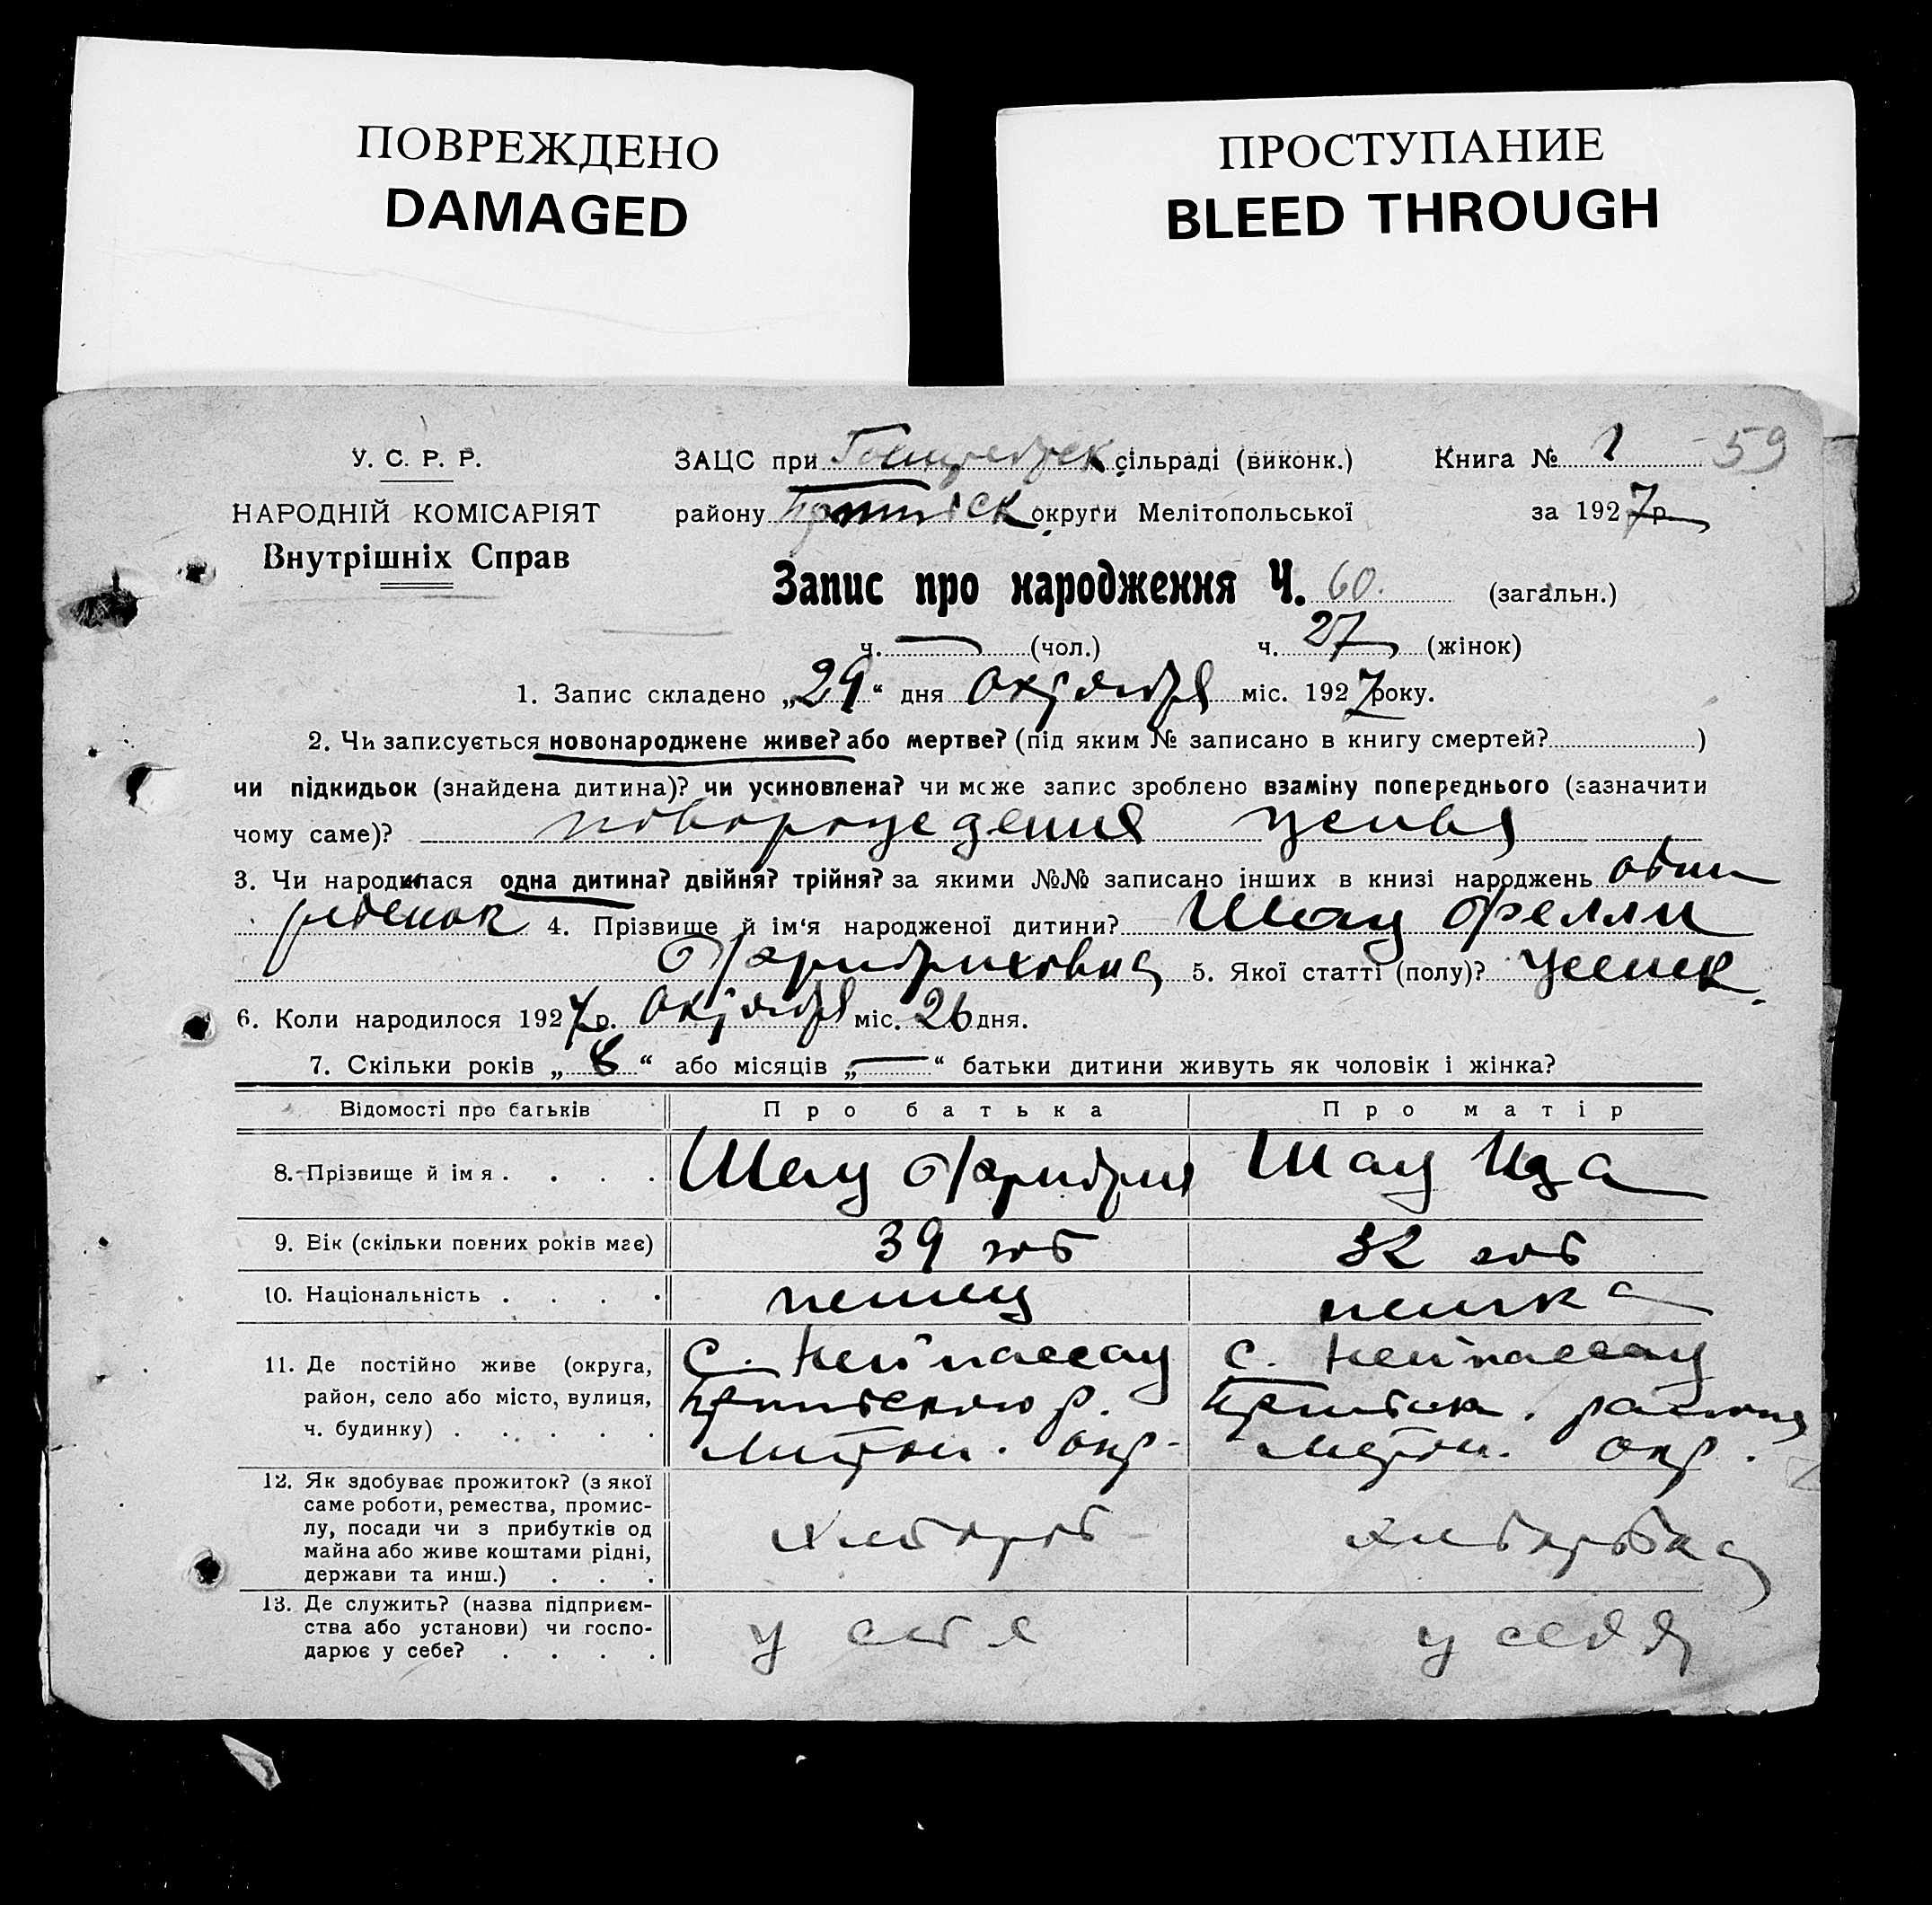 ПОВРЕЖДЕНО
DAMAGED
ПРОСТУПАНИЕ
BLEED THROUGH
У. С. Р. Р.
НАРОДНІЙ КОМІСАРІЯТ
Внутрішніх Справ
ЗАЦС при сільраді (виконк.)
району округи Мелітопольської
Книга № 1 59
за 1927 р.
Запис про народження Ч. 60. (загальн.)
ч. — (чол.) ч. 27 (жінок)
1. Запис складено „29“ дня октября міс. 1927 року.
2. Чи записується новонароджене живе? або мертве? (під яким № записано в книгу смертей? )
чи підкидьок (знайдена дитина)? чи усиновлена? чи може запис зроблено взаміну попереднього (зазначити
чому саме)? новорождения живья
3. Чи народилася одна дитина? двійня? трійня? за якими №№ записано інших в книзі народжень один
ребенок 4. Прізвище й ім‘я народженої дитини? Шау Фрелли
Фридриховна 5. Якої статті (полу)? женск.
6. Коли народилося 1927 р. октября міс. 26 дня.
7. Скільки років „8“ або місяців „—“ батьки дитини живуть як чоловік і жінка?
Відомості про батьків Про батька Про матір
8. Прізвище й імя . . . . Шау Фридрих Шау Ида
9. Вік (скільки повних років має) 39 год 32 год
10. Національність . . . . немец немка
11. Де постійно живе (округа, с. Нейнассау с. Нейнассау
район, село або місто, вулиця, р. района
ч. будинку) . . . . . . окр. окр.
12. Як здобуває прожиток? (з якої
саме роботи, ремества, промис-
лу, посади чи з прибутків од хлебороб хлеборобка
майна або живе коштами рідні,
держави та инш.) . . .
13. Де служить? (назва підприєм-
ства або установи) чи госпо- у себя у себя
дарює у себе? . . . .